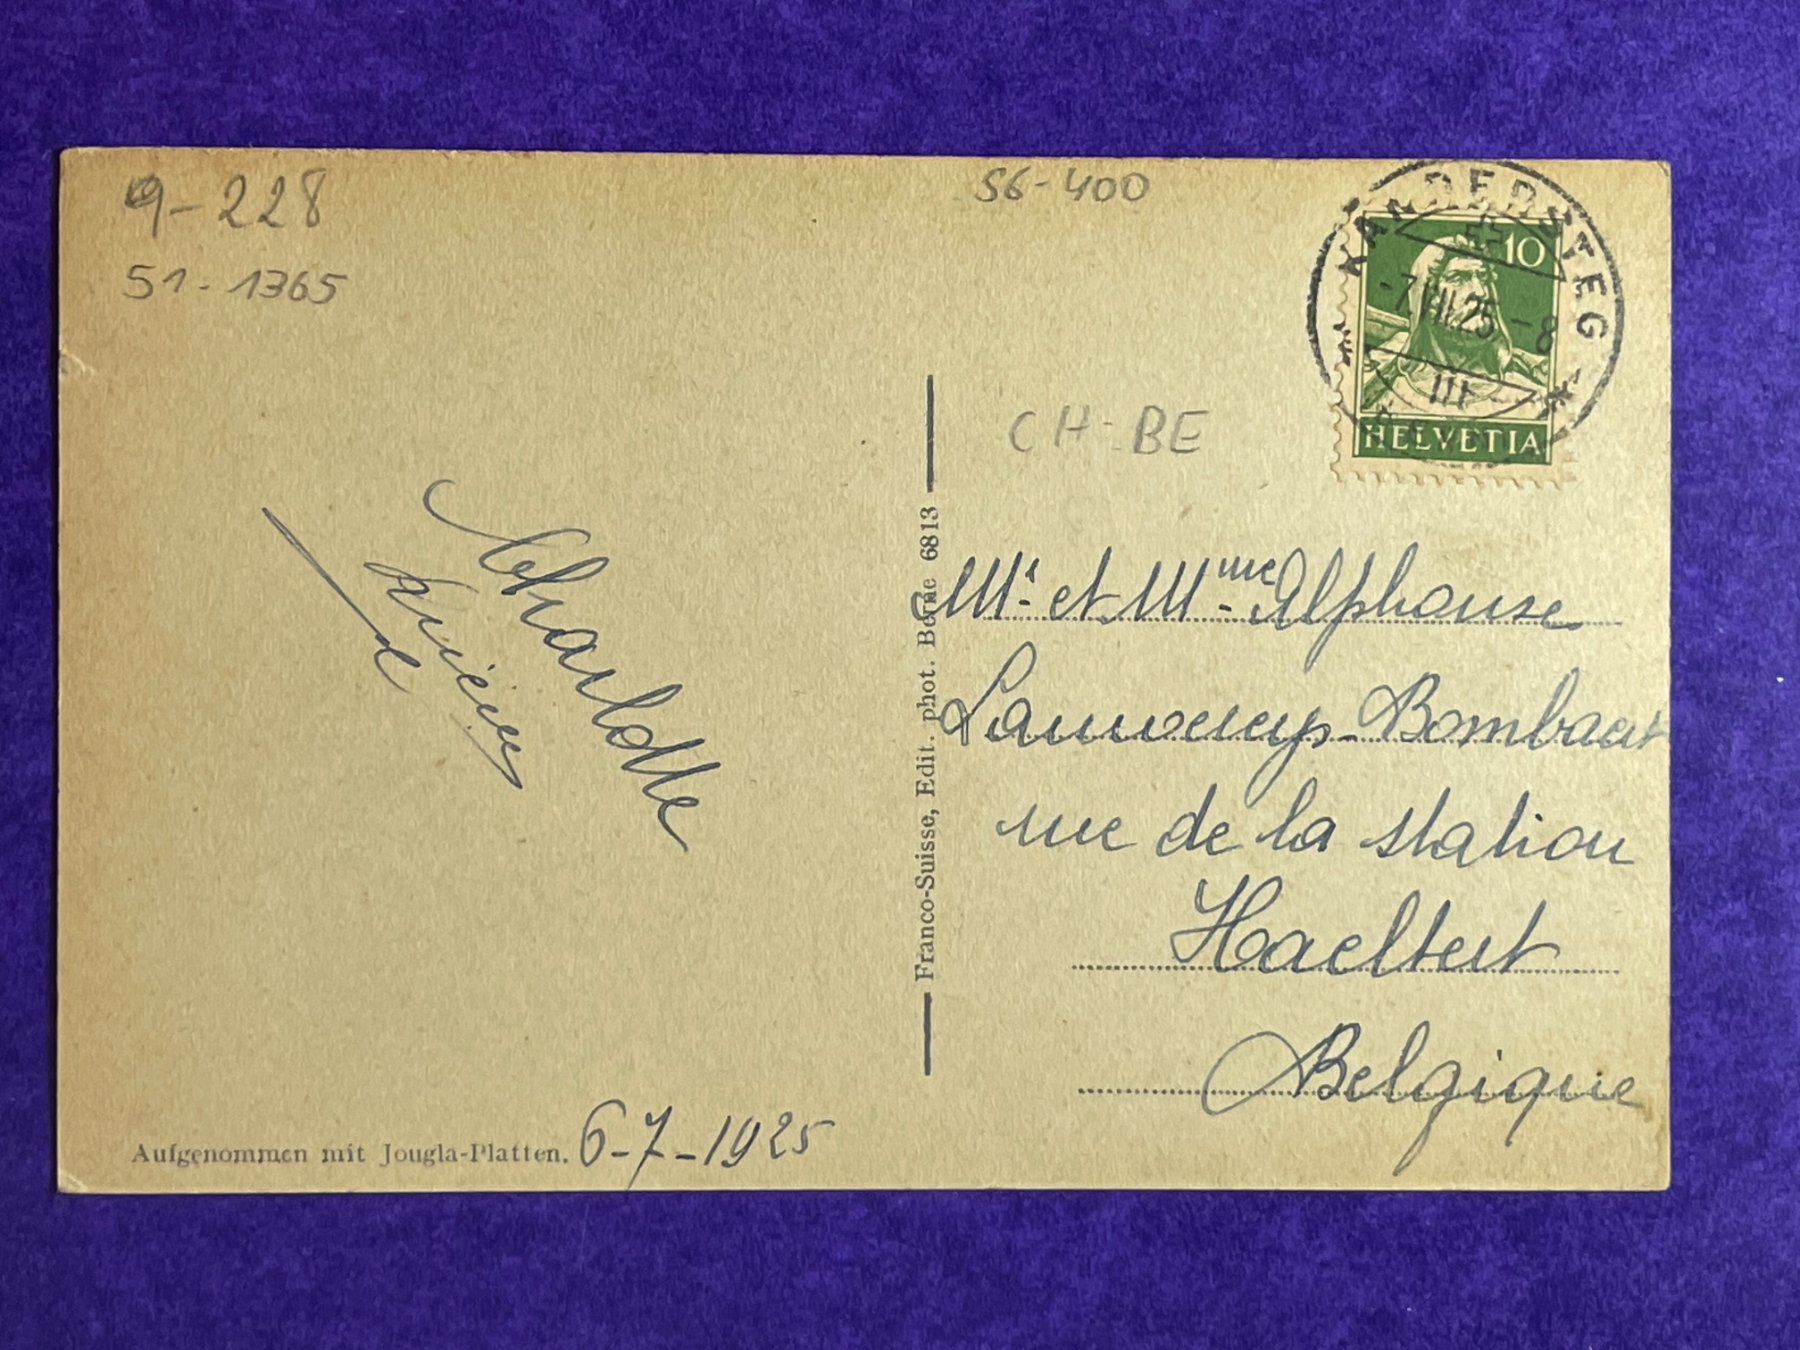 9-228
51-1365
56-400
KANDERSTEG
10
-7.VII.25-8
III
HELVETIA
CH-BE
Franco-Suisse, Edit. phot. Berne 6813
Mr. et Mme. Alphonse
rue de la station
Haeltert
Belgique
Aufgenommen mit Jougla-Platten.
6-7-1925